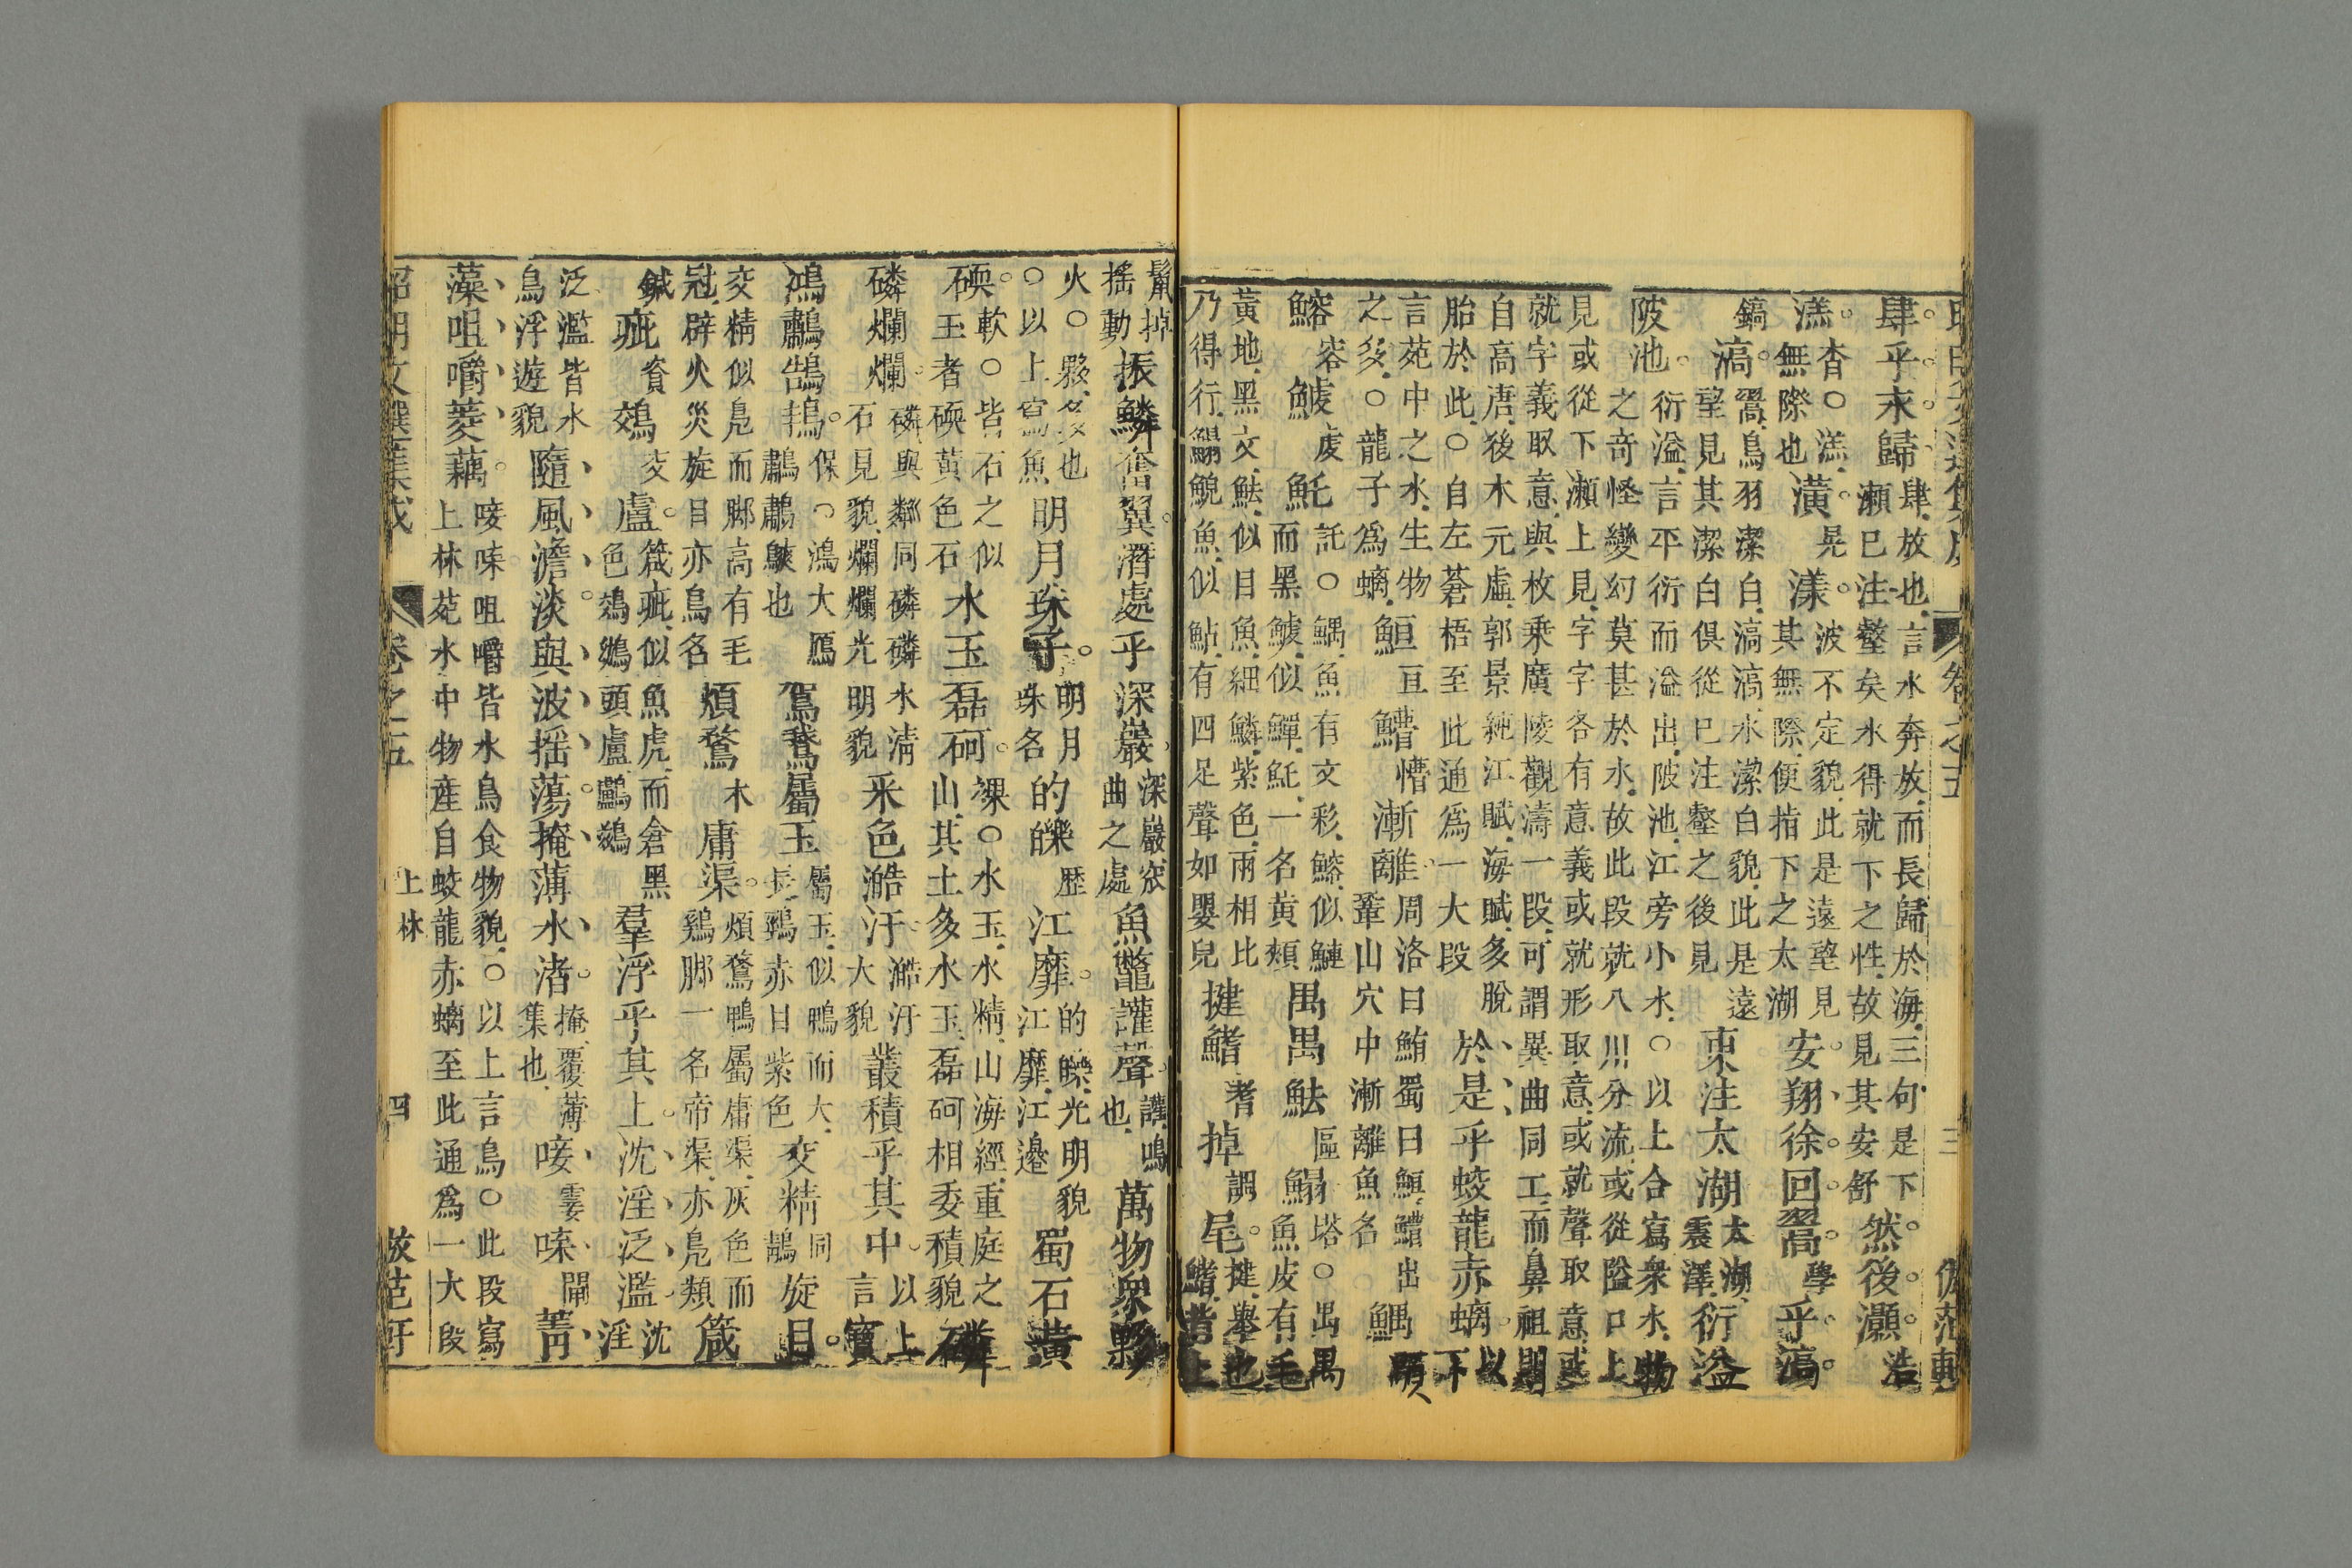 卷之五 三
肆乎永歸肆放也言水奔放而長歸於海三句是下
瀨已注壑矣水得就下之性故見其安舒然後灝浩
溔杳○溔無際也潢晃漾波不定貌此是遠望見
其無際便指下之太湖安翔徐回翯學乎滈
鎬滈翯鳥羽潔白滈滈水潔白貌此是遠
望見其潔白俱從已注壑之後見東注太湖太湖震澤衍溢
陂池衍溢言平衍而溢出陂池江旁小水○以上合寫衆水物
之奇怪變幻莫甚於水故此段就八川分流或從隘口上
見或從下瀨上見字字各有意義或就形取意或就聲取意或
就字義取意與枚乘廣陵觀濤一段可謂異曲同工而鼻祖則
自高唐後木元虛郭景純江賦海賦多脫
胎於此○自左蒼梧至此通爲一大段於是乎蛟龍赤螭以下
言苑中之水生物
之多○龍子爲螭䱎亘䲛懵漸離周洛曰鮪蜀曰䱎䲛出
鞏山穴中漸離魚名鰅顒
鰫容鰬虔魠託○鰅魚有文彩鰫似鰱
而黑鰬似鱓魠一名黃頰禺禺魼區鰨塔○禺禺
魚皮有毛
黃地黑文魼似目魚細鱗紫色兩相比
乃得行鰨鯢魚似鮎有四足聲如嬰兒揵鰭耆掉調尾揵舉也
鰭背上
鬣掉
搖動振鱗奮翼潛處乎深巖深巖
曲之處魚鼈讙聲讙鳴也萬物衆夥
火○夥多也
○以上寫魚明月珠子明月珠名的皪歷江靡的皪光明貌
江靡江邊蜀石黃
碝軟○皆石之似
玉者碝黃色石水玉磊砢裸○水玉水精山海經重庭之
山其土多水玉磊砢相委積貌磷
磷爛爛磷與粼同磷磷水淸
石見貌爛爛光明貌采色澔汗澔汗大貌叢積乎其中以上言寶
鴻鷫鵠鴇保○鴻大鴈
鷫鷫鷞也駕鵞屬玉屬玉似鴨而大
長頸赤目紫色交精旋目
交精似鳧而脚高有毛
冠辟火災旋目亦鳥名煩鶩木庸渠煩鶩鴨屬庸渠灰色而
鷄脚一名帝渠亦鳧類箴
鍼疵資鵁交盧箴疵似魚虎而倉黑
色鵁頭盧鸕鶿羣浮乎其上沈淫泛濫沈淫
泛濫皆水
鳥浮遊貌隨風澹淡與波搖蕩掩薄水渚掩覆薄
集也唼霎唼閘菁
藻咀嚼菱藕唼唼咀嚼皆水鳥食物貌○以上言鳥○此段寫
上林苑水中物產自蛟龍赤螭至此通爲一大段
昭明文選集成 卷之五 上林 四